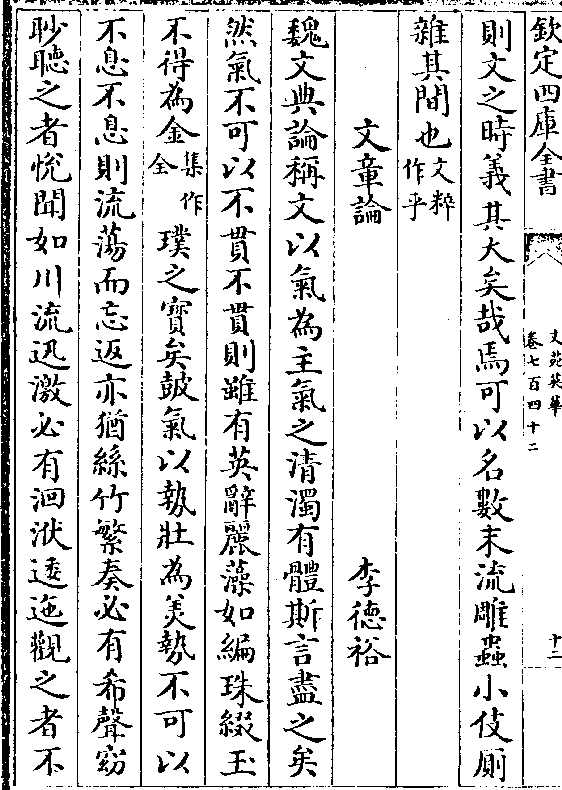 欽定四庫全書
文苑英華
卷七百四十二
十二
則文之時義其大矣哉焉可以名數末流雕蟲小伎厠
雜其間也文粹作乎
文章論 李德裕
魏文典論稱文以氣為主氣之清濁有體斯言盡之矣
然氣不可以不貫不貫則雖有英辭麗藻如編珠綴玉
不得為金集作全璞之寶矣鼓氣以埶壯為美勢不可以
不息不息則流蕩而忘返亦猶絲竹繁奏必有希聲窈
眇聽之者悅聞如川流迅激必有洄洑逶迤觀之者不